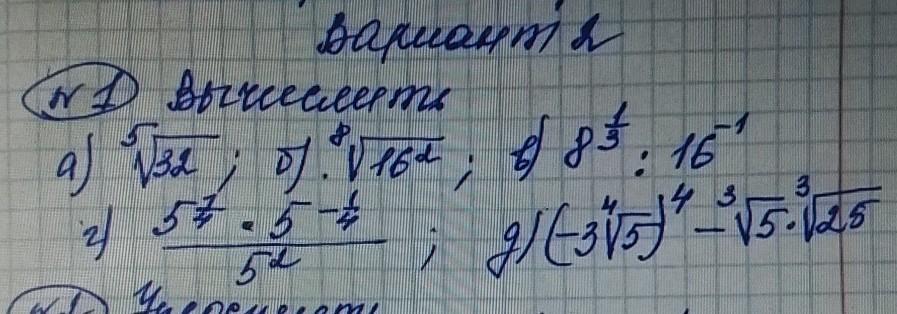 Вариант 2
№1 Вычислить
а) ⁵√32 ; б) ⁸√16² ; в) 8^(1/3) : 16^(-1)
г) (5^(7/4) · 5^(-1/4)) / 5² ; д) (-3⁴√5)⁴ - ³√5 · ³√25